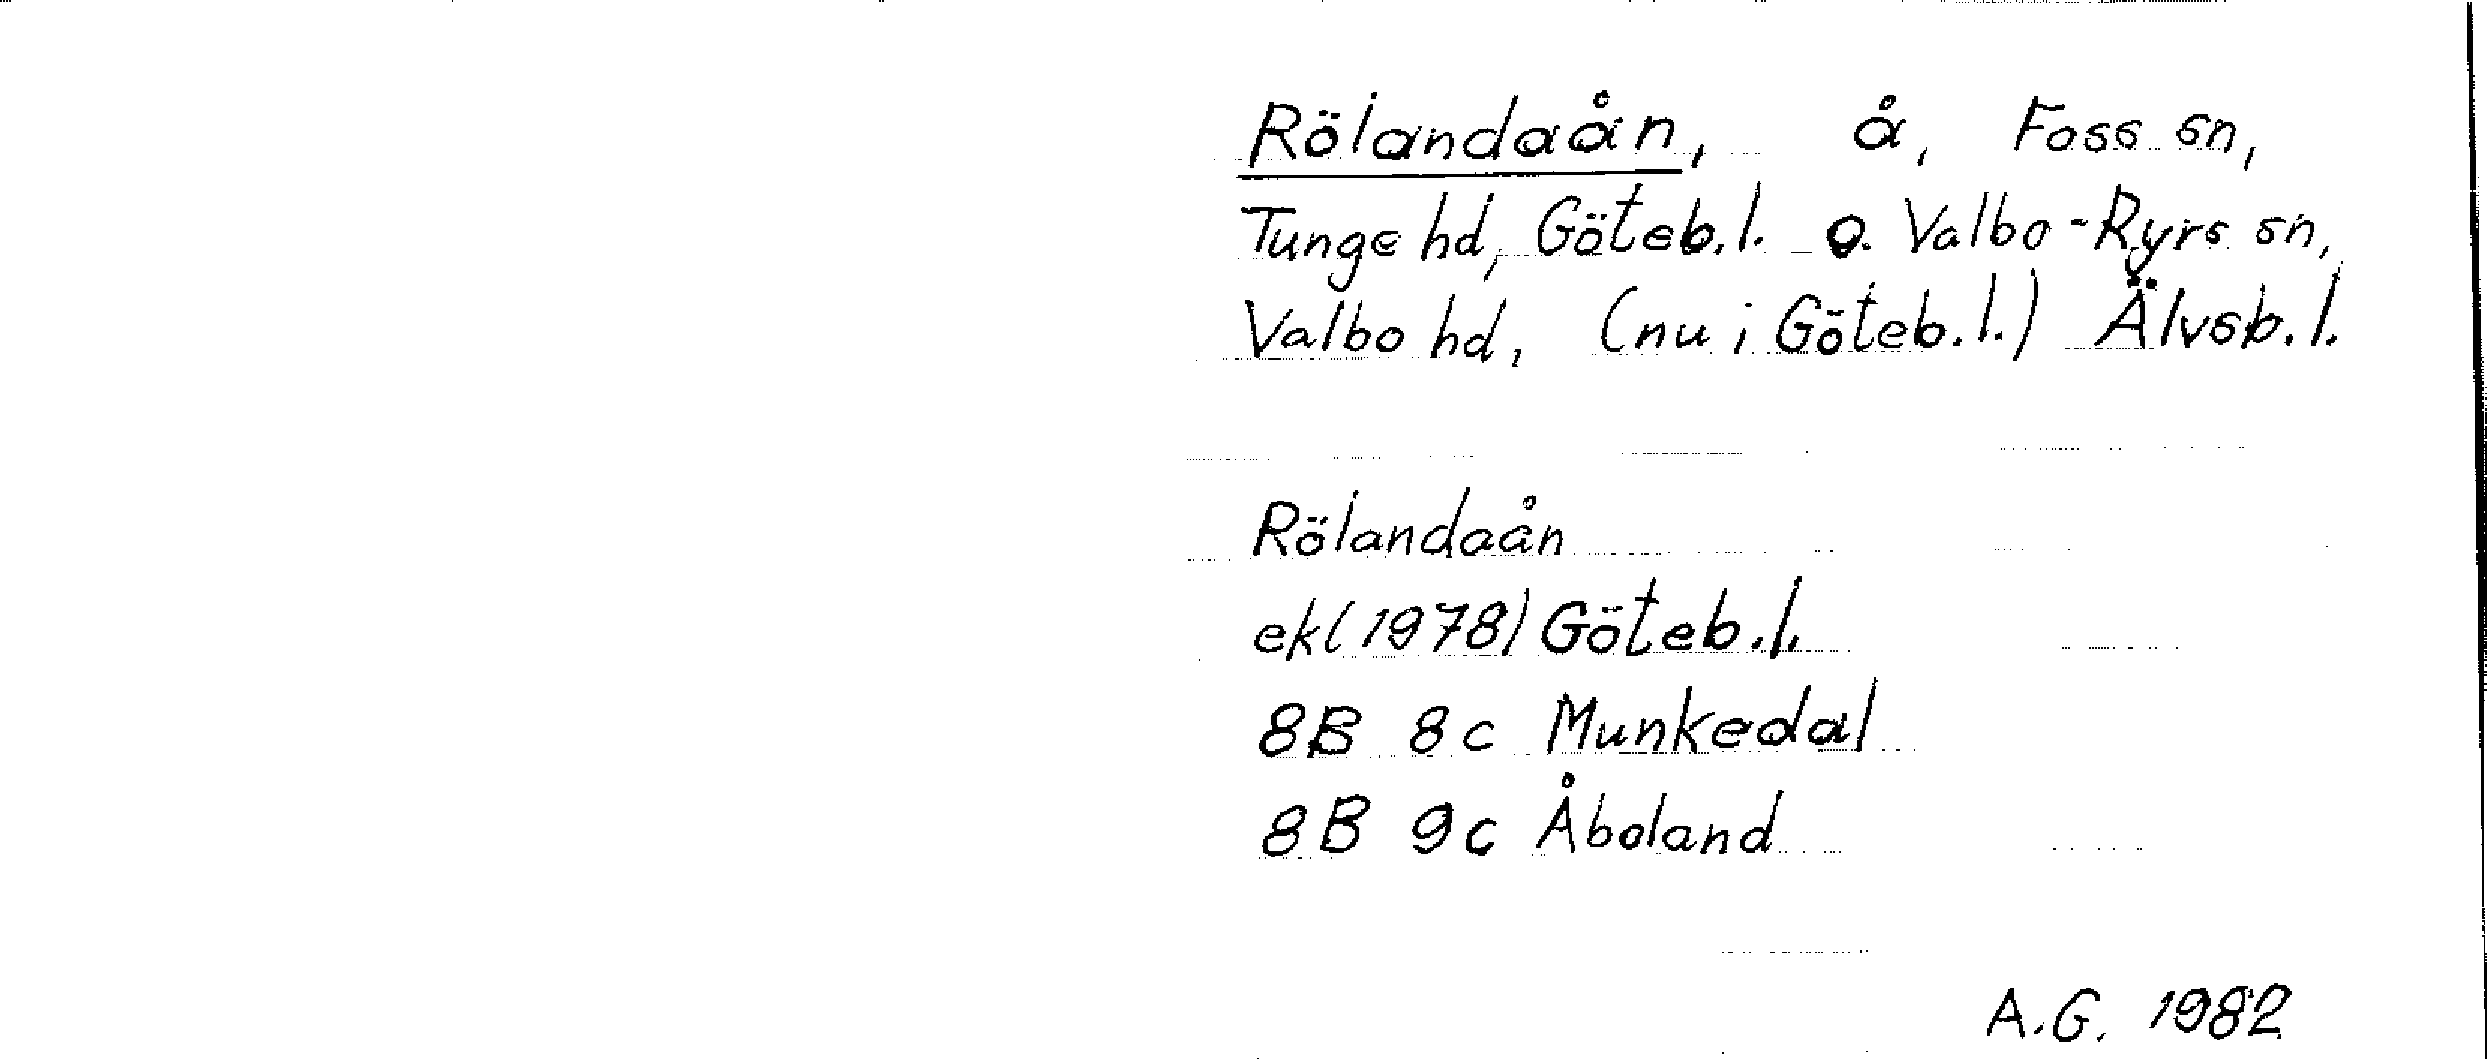 Rölandaån, å, Foss sn,
Tunge hd, Göteb.l. o. Valbo-Ryrs sn,
Valbo hd, (nu i Göteb.l.) Älvsb.l.
Rölandaån
ekl(1978) Göteb.l.
8B 8c Munkedal
8B 9c Åboland
A.G. 1982